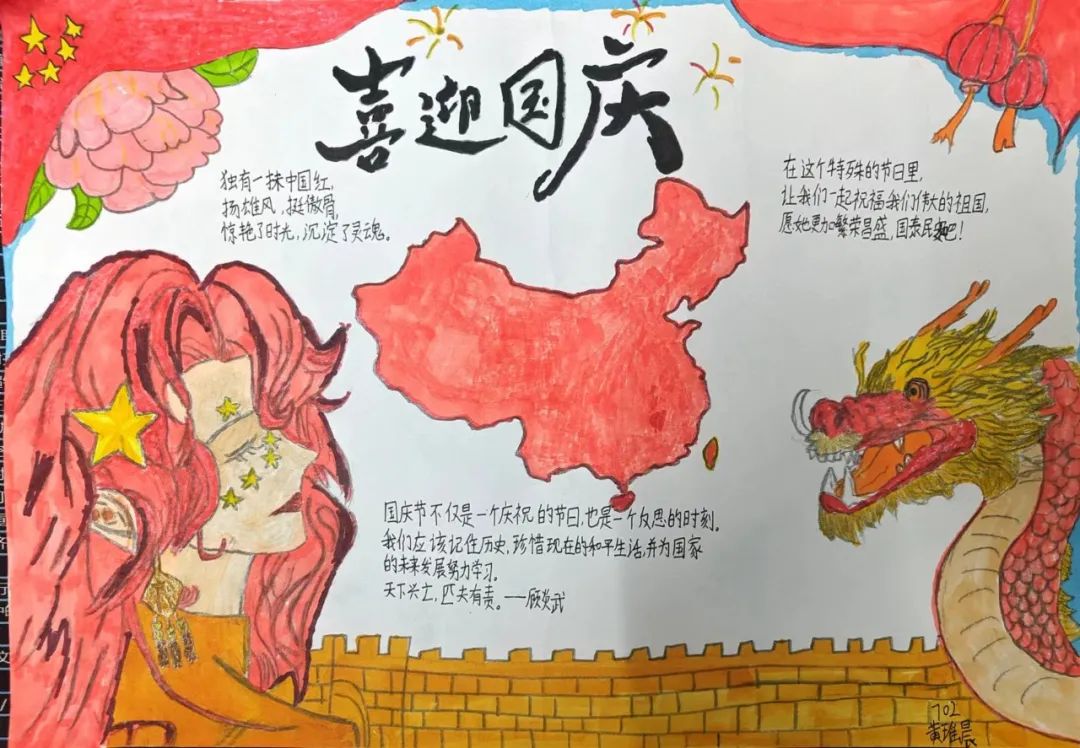 喜迎国庆
独有一抹中国红,
扬雄风,挺傲骨,
惊艳了时光,沉淀了灵魂。
在这个特殊的节日里,
让我们一起祝福我们伟大的祖国,
愿她更加繁荣昌盛,国泰民安吧!
国庆节不仅是一个庆祝的节日,也是一个反思的时刻。
我们应该记住历史,珍惜现在的和平生活,并为国家
的未来发展努力学习。
天下兴亡,匹夫有责。——顾炎武
702